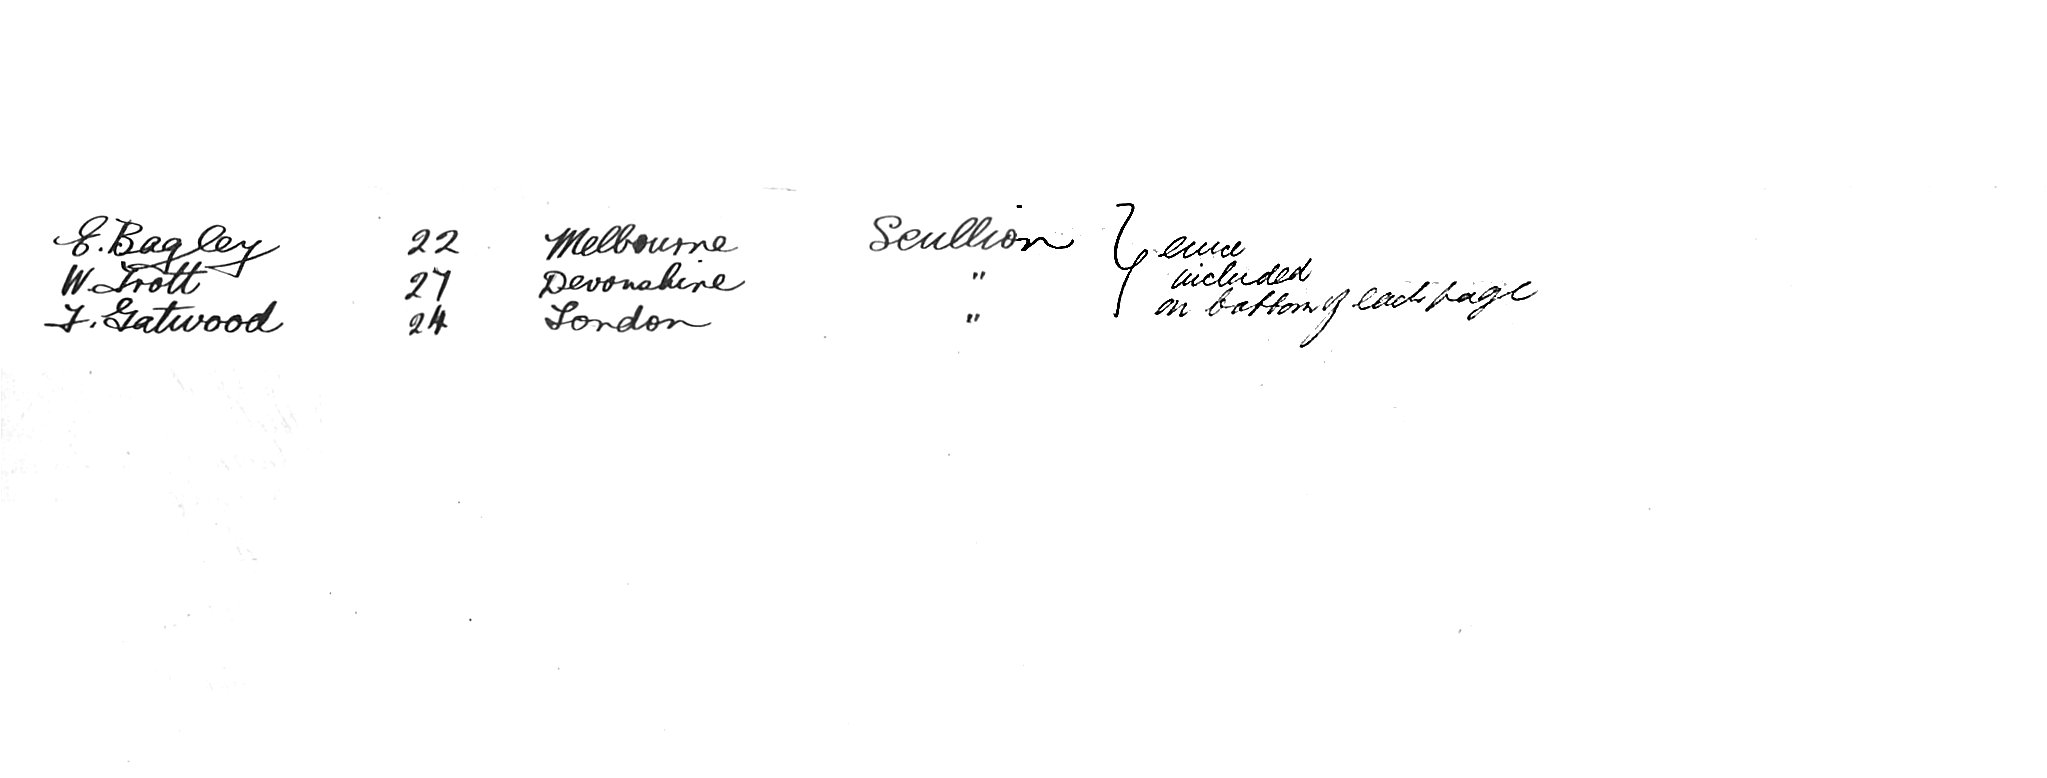 E. Bagley 22 Melbourne Scullion
W. Trott 27 Devonshire "
F. Gatwood 24 London "
included
on bottom of each page